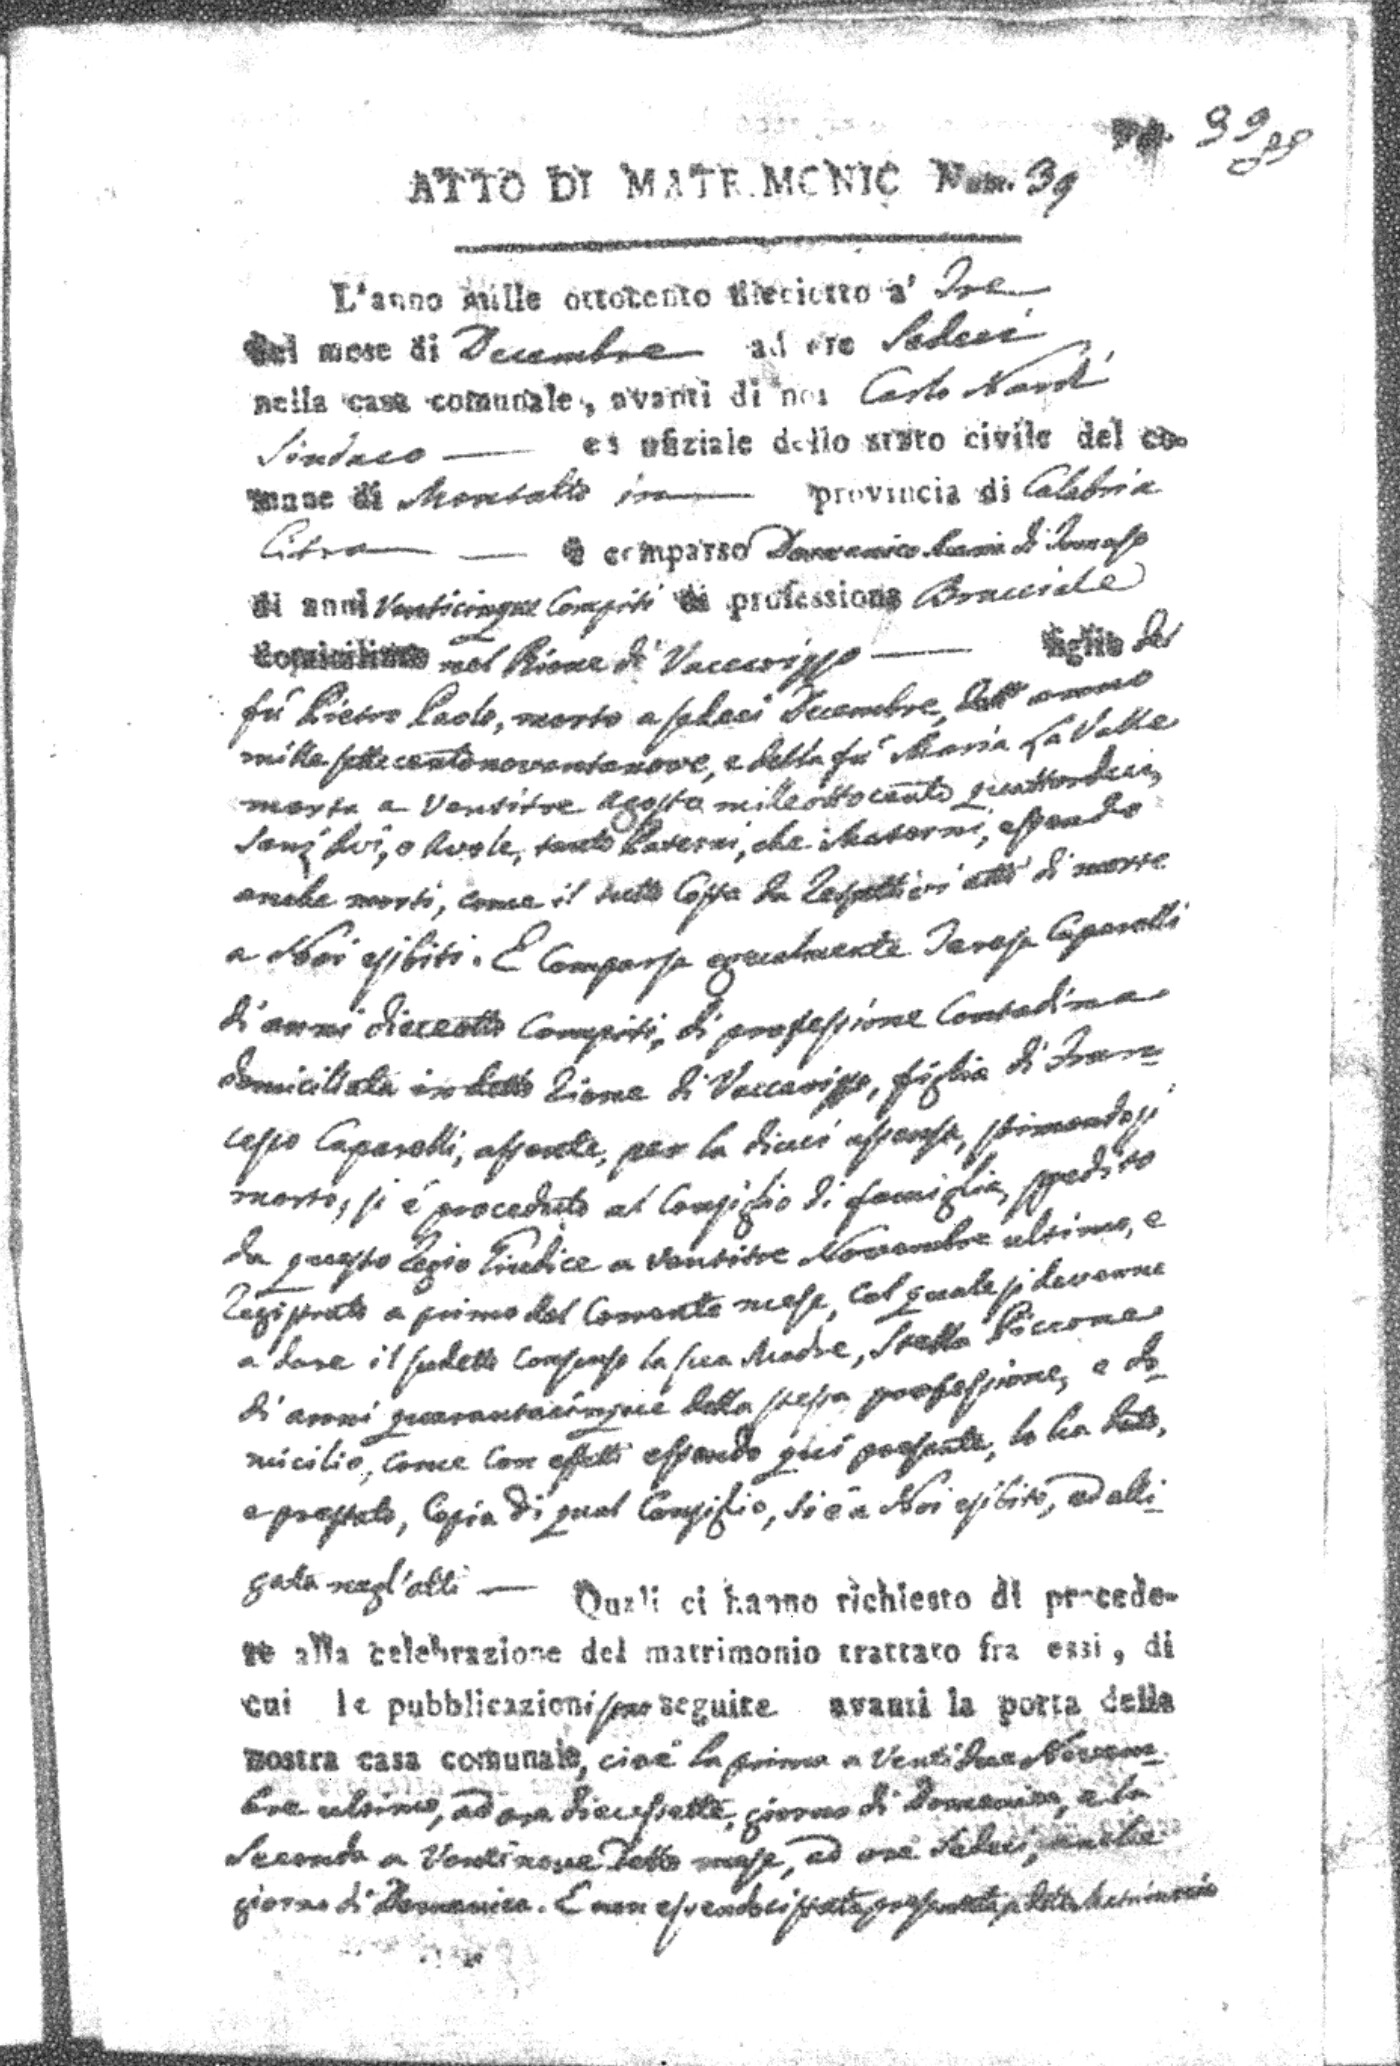 39
ATTO DI MATRIMONIO Num. 39
L'anno mille ottocento dieciotto a' Tre
del mese di Decembre ad ore Sedeci
nella casa comunale, avanti di noi Carlo Nardi
Sindaco ed ufiziale dello stato civile del co-
mune di Montalto in provincia di Calabria
Citra è comparso Domenico di Tomaso
di anni Venticinque Compiti di professione Bracciale
domiciliato nel Rione di Vaccarizzo figlio del
fù Pietro Paolo, morto a sedeci Decembre, dell'anno
mille settecentonovantanove, e della fù Maria La Valle
morta a Ventitre Agosto milleottocento quattordeci,
Avi, o Avole, tanto Paterni, che Materni, essendo
anche morti, come il tutto Costa da Respettivi atti di morte
a Noi esibiti. E Comparsa egualmente Teresa Caparelli
di anni dieceotto Compiti, di professione Contadina
domiciliata in detto Rione di Vaccarizzo, figlia di Fran-
cesco Caparelli, assente, per la di cui assenza, stimandosi
morto, si è proceduto al Consiglio di famiglia, spedito
da questo Regio Giudice a ventitre Novembre ultimo, e
Registrato a primo del Corrente mese, col quale si devenne
a dare il sudetto consenso la sua Madre, Stella Piccone
di anni quarantacinque della stessa professione, e do-
micilio, come con effetti essendo qui presente, lo ha dato,
e prestato, Copia di qual Consiglio, si è a Noi esibito, ed alli-
gata negl'atti Quali ci hanno richiesto di procede-
re alla celebrazione del matrimonio trattato fra essi, di
cui le pubblicazioni sono seguite avanti la porta della
nostra casa comunale, cioè la prima a Ventidue Novem-
bre ultimo, ad ora diecessette, giorno di Domenica, e la
Seconda a Ventinove detto mese, ad ore Sedeci, anche
giorno di Domenica. E non essendoci stata presentata a detto Matrimonio